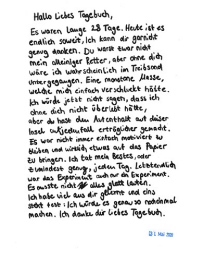 Hallo liebes Tagebuch,
Es waren lange 28 Tage. Heute ist es
endlich soweit, Ich kann dir garnicht
genug danken. Du warst zwar nicht
mein alleiniger Retter, aber ohne dich
wäre ich wahrscheinlich im Treibsand
untergegangen. Eine monotone Masse,
welche mich einfach verschluckt hätte.
Ich würde jetzt nicht sagen, dass ich
ohne dich nicht überlebt hätte,
aber du hast den Aufenthalt auf dieser
Insel aufjedenfall erträglicher gemacht.
Es war nicht immer einfach motiviert zu
bleiben und wirklich etwas auf das Papier
zu bringen. Ich tat mein Bestes, oder
zumindest genug, jeden Tag. Letztendlich
war das Experiment auch nur ein Experiment.
Es musste nicht alles glatt laufen.
Ich habe viel aus dir gelernt und eins
steht fest: Ich würde es genau so nochmal
machen. Ich danke dir liebes Tagebuch.